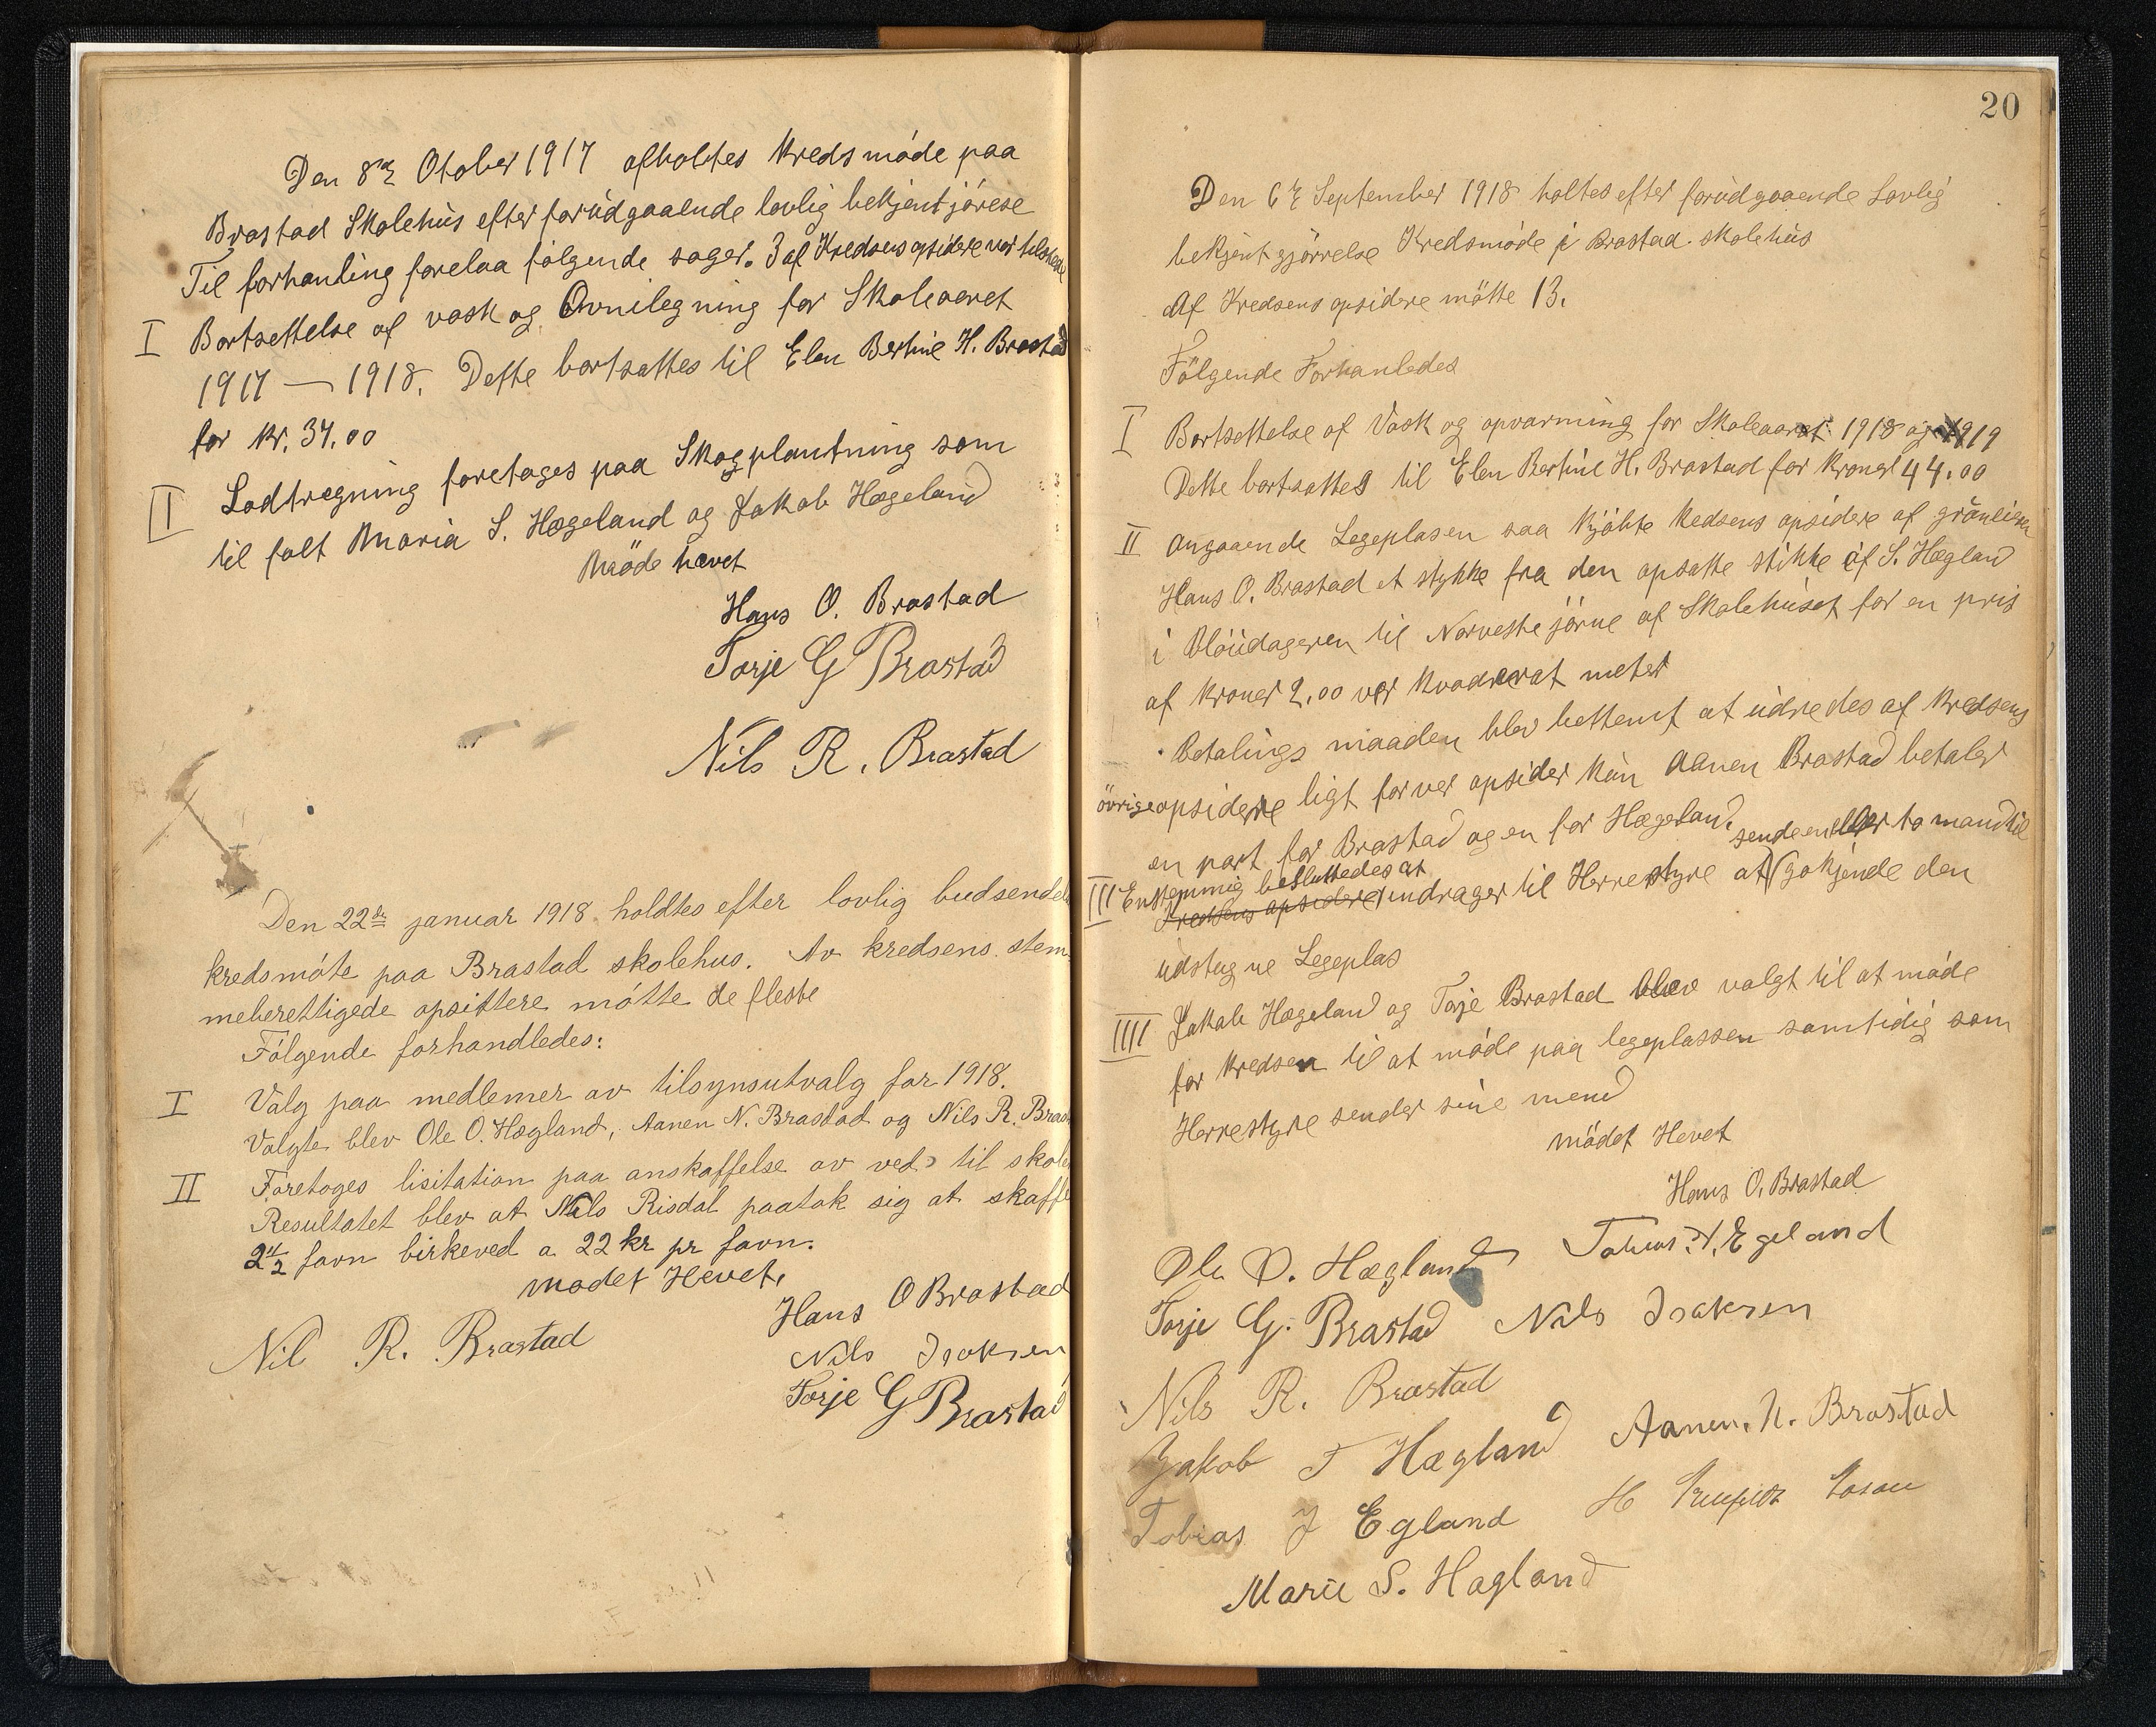 Den 8de Otober 1917 afholtes Kredsmöde paa
Brastad Skolehus efter forudgaaende lovlig bekjentjörese
Til forhanling forelaa fölgende sager. 3 af Kredsens opsidere var tilstede
I Bortsettelse af vask og Ovnilegning for Skoleaaret
1917 — 1918. Dette bortsattes til Elen Bertine H. Brastad
for Kr. 37.00
II Lodtregning foretages paa Skogplantning som
til falt Maria S. Hægeland og Jakob Hægeland
Möde hævet
Hans O. Brastad
Torje G Brastad
Nils R. Brastad
Den 22de januar 1918 holdtes efter lovlig budsendel
kredsmöte paa Brastad skolehus. Av kredsens stem-
meberettigede opsittere mötte de fleste
Følgende forhandledes:
I Valg paa medlemer av tilsynsutvalg for 1918.
Valgte blev Ole O. Hægland, Aanen N. Brastad og Nils R. Bras
II Foretoges lisitation paa anskaffelse av ved til skole
Resultatet blev at Nils Risdal paatok sig at skaffe
2 1/2 favn birkeved a 22 kr pr favn.
mødet Hevet.
Hans O Brastad
Nil R. Brastad
Nils Isaksen
Torje G Brastad
20
Den 6te September 1918 holtes efter forudgaaende Lovlig
bekjentgjörrelse Kredsmöde i Brastad skolehus
Af Kredsens opsidere mötte 13.
Fölgende Forhanledes
I Bortsettelse af Vask og opvarming for Skoleaaret 1918 og 1919
Dette bortsattes til Elen Bertine H. Brastad for Kroner 44.00
II Angaaende Legeplasen saa Kjöbte Kedsens opsidere af
Hans O. Brastad et stykke fra den opsatte stikke af S. Hægland
i Blöudageren til Norvestre jörne af Skolehuset for en pris
af Kroner 2.00 ver Kvadrerat meter
Betalings maaden blev bestemt at udredes af Kredsens
övrige opsidere ligt for ver opsider Kun Aanen Brastad betaler
en part for Brastad og en for Hægeland.
sende en eller to mand til
III Enstemmig besluttedes at
Kredsens opsidere indrager til Herrestyre at gokjende den
udstugne Legeplas
IIII Jakob Hægeland og Torje Brastad blev valgt til at möde
for Kredsen til at möde paa legeplassen samtidig som
Herrestyre sender sine mend
mödet Hevet
Hans O. Brastad
Ole O. Hægland
Torje G. Brastad Nils Isaksen
Nils R. Brastad
Jakob T Hægland Aanen. N. Brastad
Tobias J Egland
Marie S. Hagland